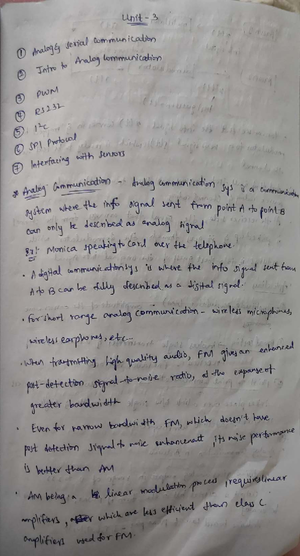 Unit - 3
① Analog & serial communication
② Intro to Analog Communication
③ PWM
④ RS232
⑤ I²C
⑥ SPI Protocol
⑦ Interfacing with Sensors
* Analog Communication - Analog communication sys is a communication
system where the info signal sent from point A to point B
can only be described as analog signal
Ex: Monica speaking to Carol over the telephone
• A digital communication sys is where the info signal sent from
A to B can be fully described as a digital signal.
• For short range analog communication - wireless microphones,
wireless earphones, etc...
• When transmitting high quality audio, FM gives an enhanced
post-detection signal-to-noise ratio, at the expanse of
greater bandwidth
• Even for narrow bandwidth FM, which doesn't have
post detection signal to noise enhancement, its noise performance
is better than AM
• AM being a linear modulation process, requires linear
amplifiers, which are less efficient than class C
amplifiers used for FM.